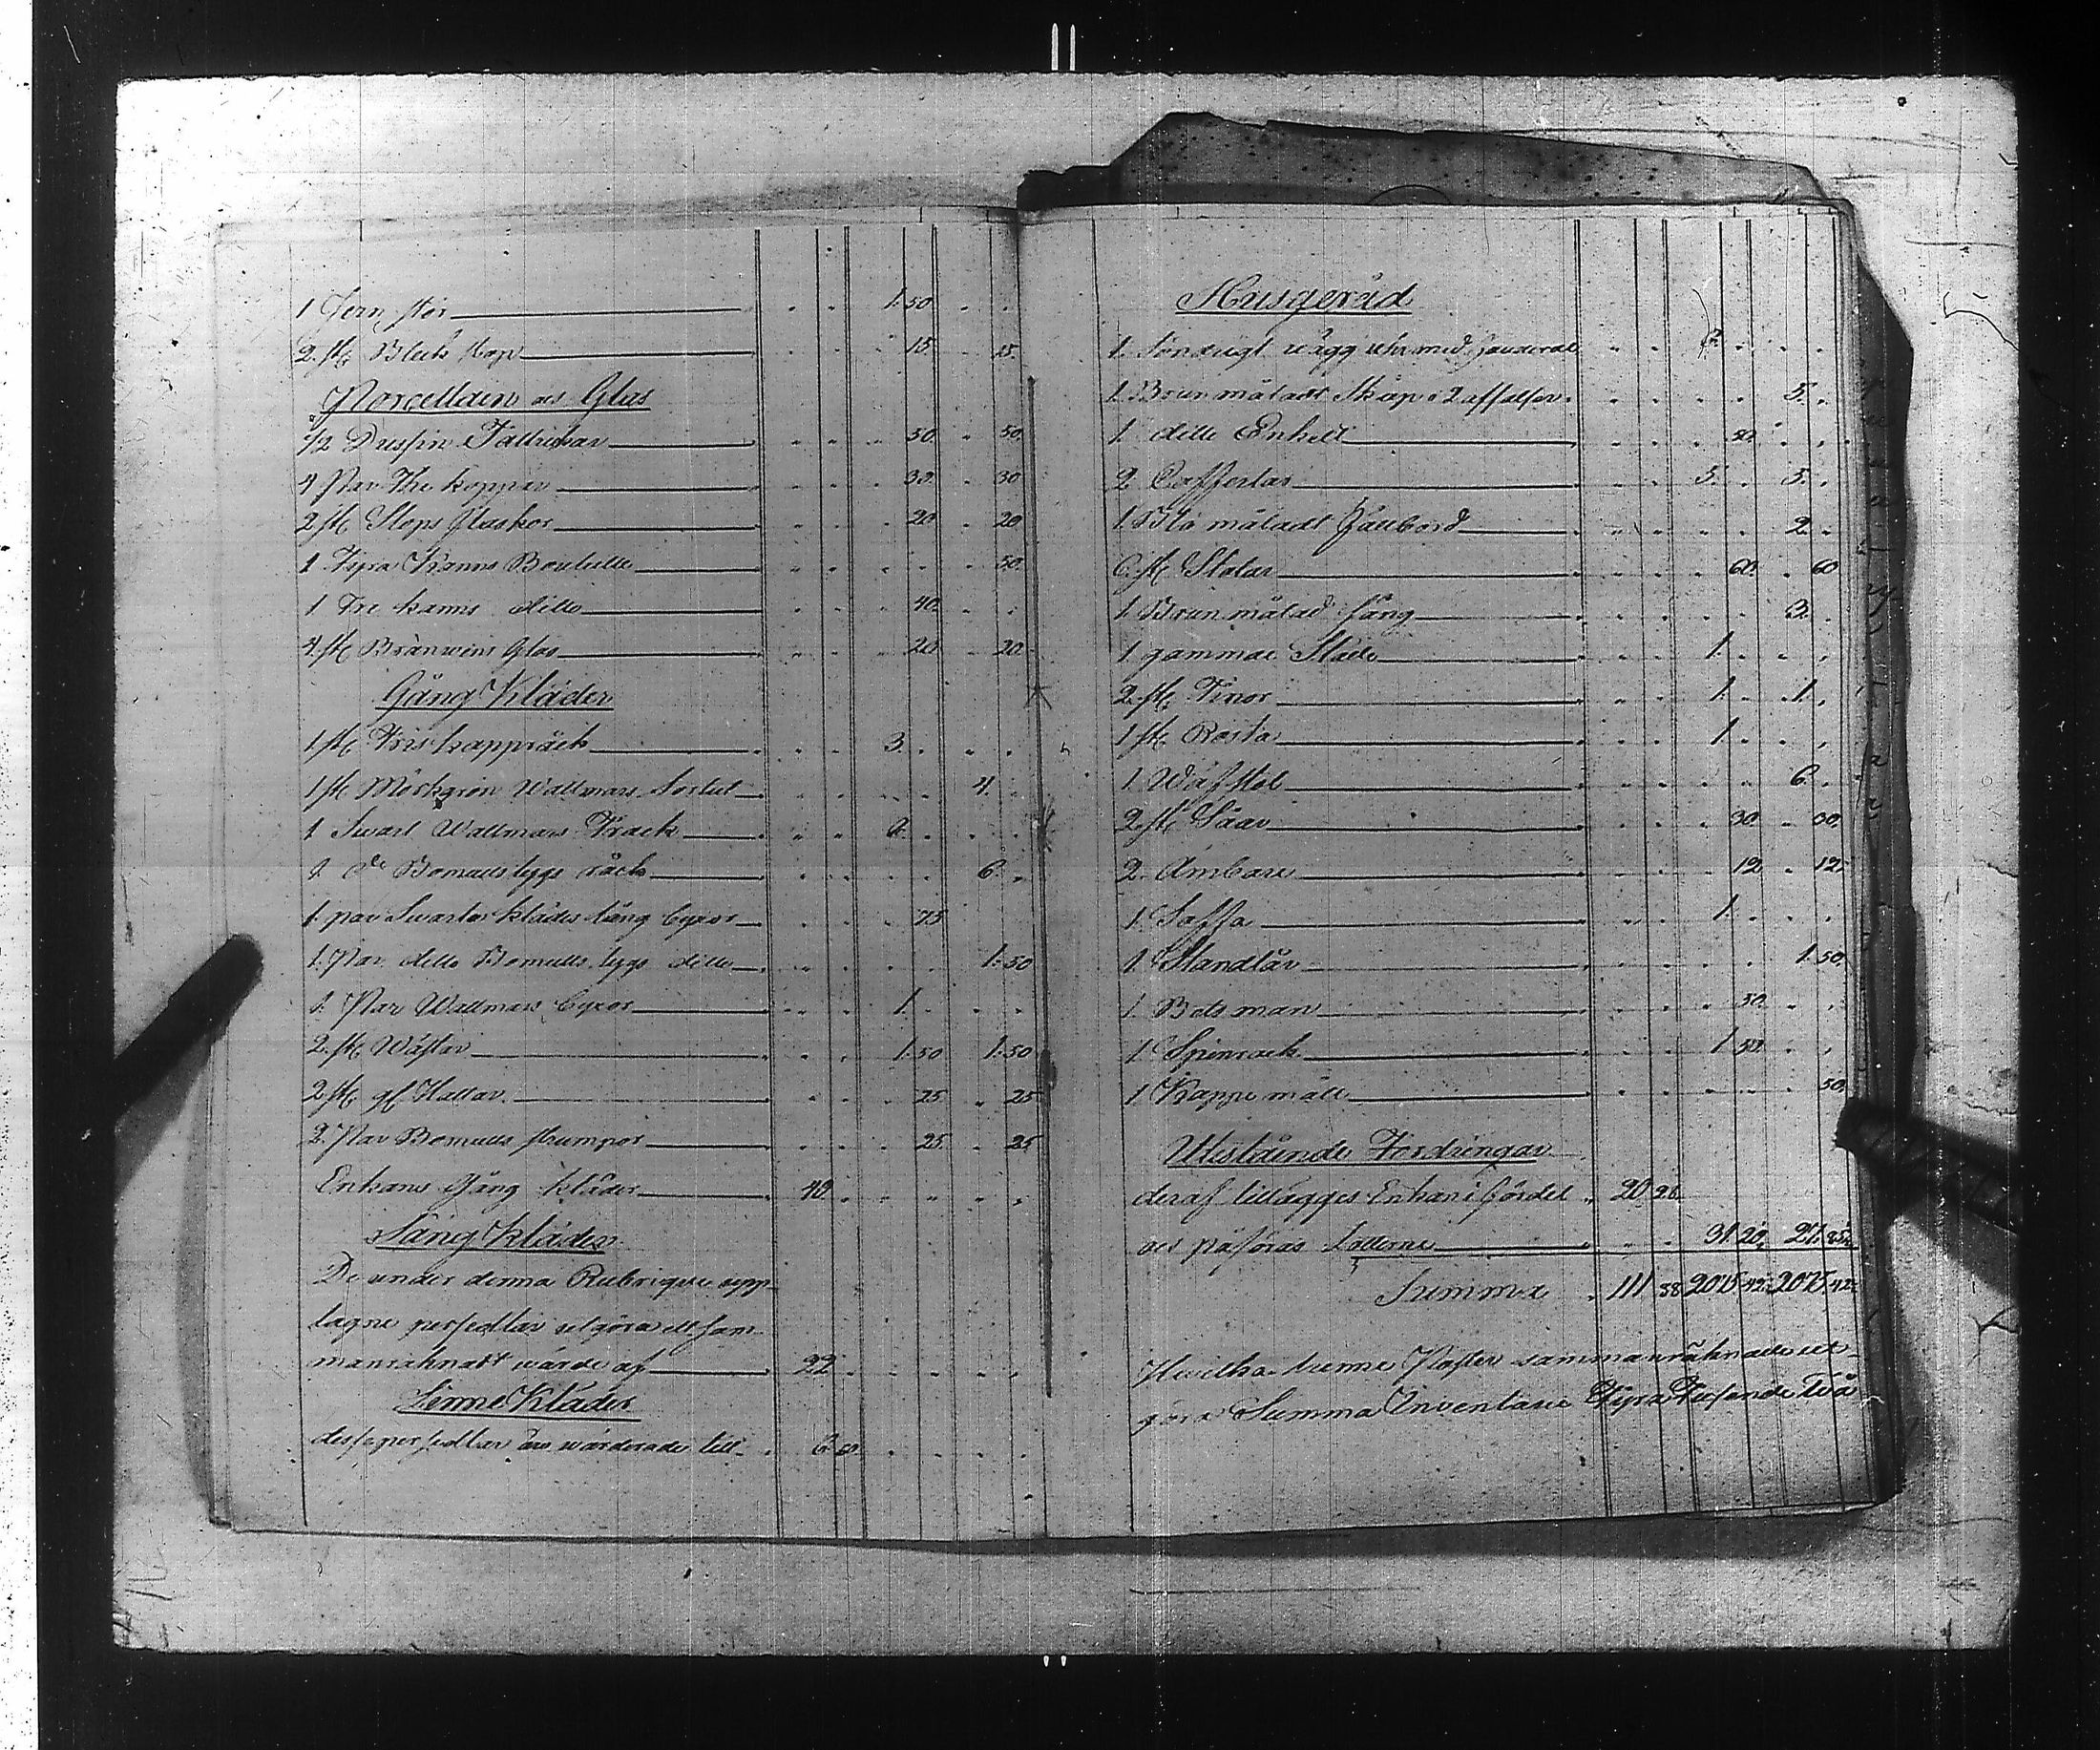 1 Jern stör 1. 50
2. st. Bleck stop 15. 15.
Porcellain och Glas
1/2 Dussin Tallrickar 50. 50.
4 Par The koppar 30. 30
2. st. Stops flaskor 20. 20.
1 Fyra Kanns Bouteille 50.
1 Tre kanns ditto 40.
4. st. Bränwins Glas 20 20.
Gång Kläder
1 st. 3.
1 st. Mörkgrön Wallmars Sortut 4.
1 Swart Wallmars Frack 6.
1. do Bomulls tygs råck 6.
1. par Swarta klädes lång byxor 75
1. Par ditto Bomulls tygs ditto 1. 50
1. Par Wallmars byxor 1.
2. st. Wästar 1. 50 1. 50
2 st. gl Hattar 25 25
2. Par Bomulls strumpor 25 25
Enkans Gång kläder 40
Säng Kläder
De under denna Rubrique upp-
tagne persedlar utgöra ett sam-
manräknadt wärde af 22
Linne Kläder
desse persedlar äro wärderade till 6 50
Husgeråd
1. wägg uhr med
1. Brun måladt Skåp i 2 afsattser 5.
1. ditto Enkelt 50.
2. 5. 5.
1. Blå måladt Fällbord 2.
6. st. Stolar 60. 60
1 Brun målad Säng 3.
1 gammal 1.
2. st. Tinor 1. 1.
1 st. 1.
1. Wäfstol 6.
2. st. Såar 30. 30.
2. Ämbare 12 12.
1. Soffa 1.
1. Standkar 1 50.
1. Bets man 50.
1. Spinrock 1. 50.
1. Kappe mått 50
Utestående Fordringar
deraf tillägges Enkan i fördel 20 28
och påföras Lotterne 31. 20.
Summa 111 2075 42 2075 42
Hwilka trenne Poster sammanräknade ut-
göra Summa Inventarie Fyra Tusende Två